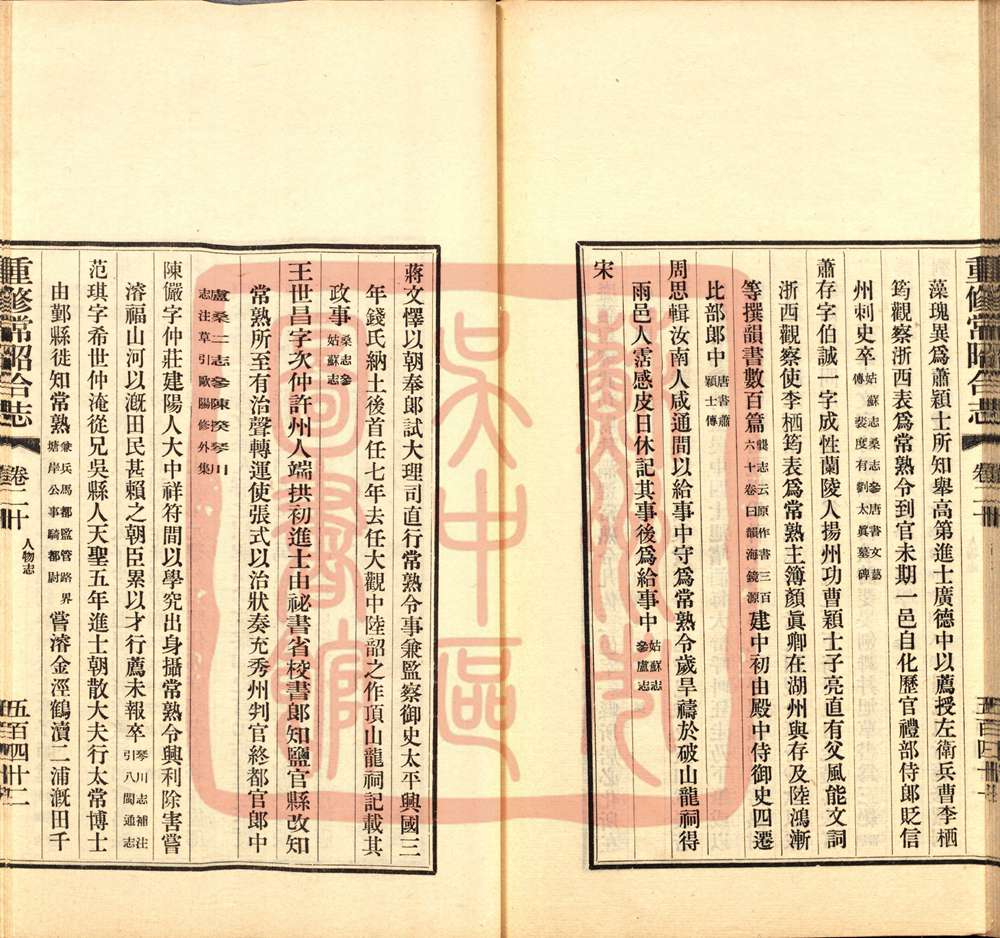 藻瑰異爲蕭穎士所知舉高第進士廣德中以薦授左衛兵曹李栖
筠觀察浙西表爲常熟令到官未期一邑自化歷官禮部侍郎貶信
州刺史卒姑蘇志桑志參唐書文藝傳裴度有劉太眞墓碑
蕭存字伯誠一字成性蘭陵人揚州功曹穎士子亮直有父風能文詞
浙西觀察使李栖筠表爲常熟主簿顏眞卿在湖州與存及陸鴻漸
等撰韻書數百篇龔志云原作書三百六十卷曰韻海鏡源建中初由殿中侍御史四遷
比部郎中唐書蕭穎士傳
周思輯汝南人咸通間以給事中守爲常熟令歲旱禱於破山龍祠得
雨邑人霑感皮日休記其事後爲給事中姑蘇志參盧志
宋
蔣文懌以朝奉郎試大理司直行常熟令事兼監察御史太平興國三
年錢氏納土後首任七年去任大觀中陸韶之作頂山龍祠記載其
政事桑志參姑蘇志
王世昌字次仲許州人端拱初進士由祕書省校書郎知鹽官縣改知
常熟所至有治聲轉運使張式以治狀奏充秀州判官終都官郎中
盧桑二志參陳揆琴川志注草引歐陽修外集
陳儼字仲莊建陽人大中祥符間以學究出身攝常熟令興利除害嘗
濬福山河以漑田民甚賴之朝臣累以才行薦未報卒琴川志補注引八閩通志
范琪字希世仲淹從兄吳縣人天聖五年進士朝散大夫行太常博士
由鄞縣徙知常熟兼兵馬都監管路界塘岸公事騎都尉嘗濬金涇鶴瀆二浦漑田千
重修常昭合志
卷二十
人物志
五百四十二